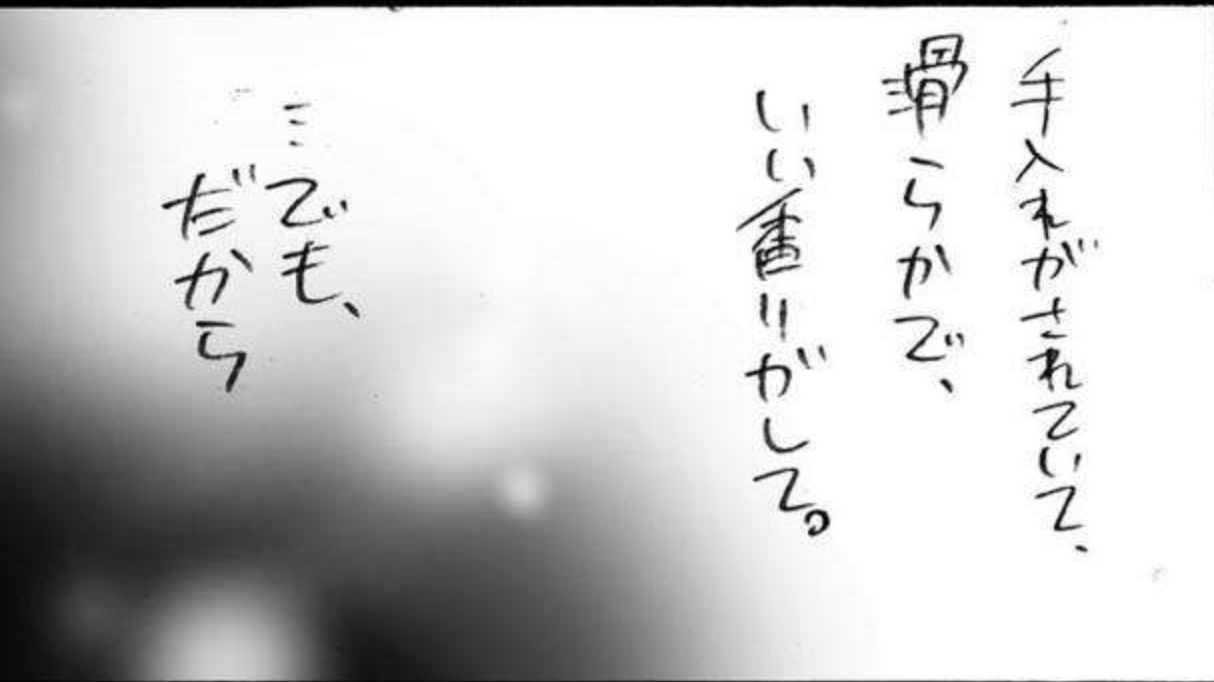 手入れがされていて、
滑らかで、
いい香りがして。
…でも、
だから